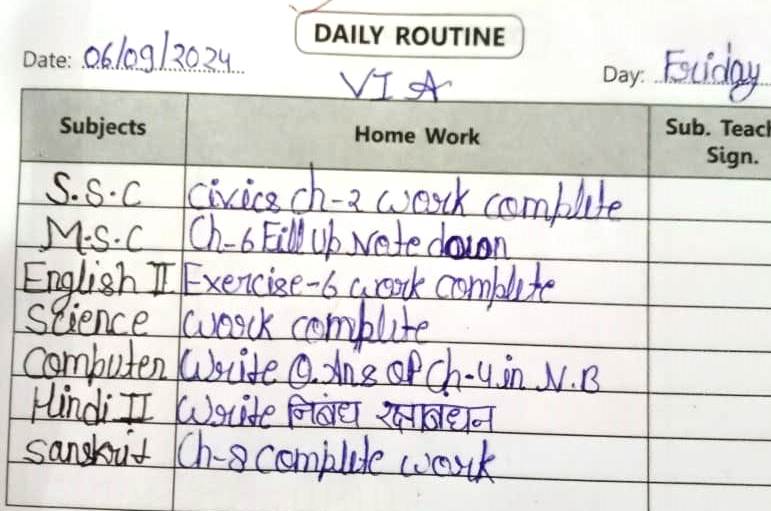 DAILY ROUTINE
Date: 06/09/2024 Day: Friday
VI A
Subjects Home Work Sub. Teach Sign.
S.S.C Civics ch-2 work complete
M.S.C Ch-6 Fill up Note down
English II Exercise-6 work complete
Science work complite
Computer Write Q.Ans of Ch-4 in N.B
Hindi II Write निबंध रक्षाबंधन
Sanskrit Ch-8 Complete work